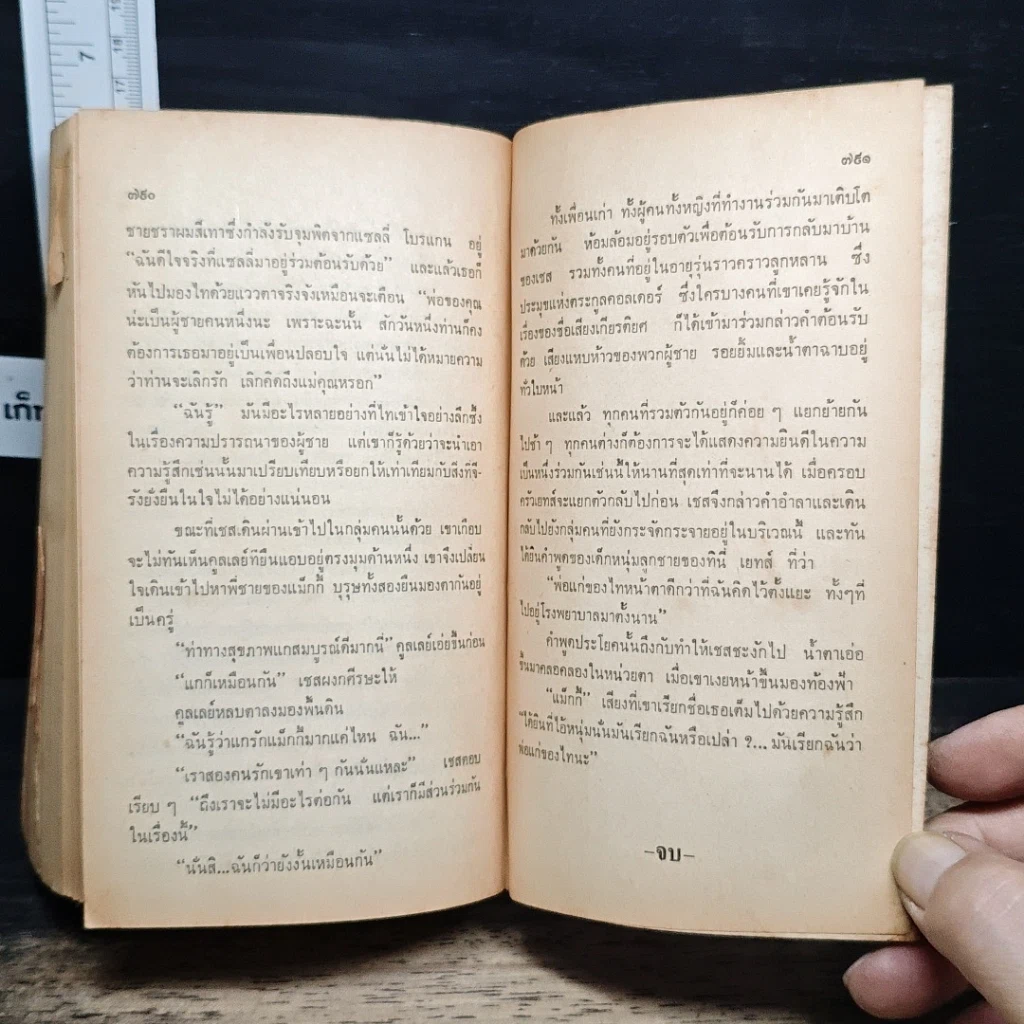 7
19
18
17
เก็
๗๙๐
ชายชราผมสีเทาซึ่งกำลังรับจุมพิตจากแซลลี่ โบรแกน อยู่
“ฉันดีใจจริงที่แซลลี่มาอยู่ร่วมต้อนรับด้วย” และแล้วเธอก็
หันไปมองไทด้วยแววตาจริงจังเหมือนจะเตือน “พ่อของคุณ
น่ะเป็นผู้ชายคนหนึ่งนะ เพราะฉะนั้น สักวันหนึ่งท่านก็คง
ต้องการเธอมาอยู่เป็นเพื่อนปลอบใจ แต่นั่นไม่ได้หมายความ
ว่าท่านจะเลิกรัก เลิกคิดถึงแม่คุณหรอก”
“ฉันรู้” มันมีอะไรหลายอย่างที่ไทเข้าใจอย่างลึกซึ้ง
ในเรื่องความปรารถนาของผู้ชาย แต่เขาก็รู้ด้วยว่าจะนำเอา
ความรู้สึกเช่นนั้นมาเปรียบเทียบหรือยกให้เท่าเทียมกับสิ่งที่จี-
รังยั่งยืนในใจไม่ได้อย่างแน่นอน
ขณะที่เชสเดินผ่านเข้าไปในกลุ่มคนนั้นด้วย เขาเกือบ
จะไม่ทันเห็นคูลเลย์ที่ยืนแอบอยู่ตรงมุมด้านหนึ่ง เขาจึงเปลี่ยน
ใจเดินเข้าไปหาพี่ชายของแม็กกี้ บุรุษทั้งสองยืนมองตากันอยู่
เป็นครู่
“ท่าทางสุขภาพแกสมบูรณ์ดีมากนี่” คูลเลย์เอ่ยขึ้นก่อน
“แกก็เหมือนกัน” เชสผงกศีรษะให้
คูลเลย์หลบตาลงมองพื้นดิน
“ฉันรู้ว่าแกรักแม็กกี้มากแค่ไหน ฉัน...”
“เราสองคนรักเขาเท่า ๆ กันนั่นแหละ” เชสตอบ
เรียบ ๆ “ถึงเราจะไม่มีอะไรต่อกัน แต่เราก็มีส่วนร่วมกัน
ในเรื่องนี้”
“นั่นสิ...ฉันก็ว่ายังงั้นเหมือนกัน”
๗๙๑
ทั้งเพื่อนเก่า ทั้งผู้คนทั้งหญิงที่ทำงานร่วมกันมาเติบโต
มาด้วยกัน ห้อมล้อมอยู่รอบตัวเพื่อต้อนรับการกลับมาบ้าน
ของเชส รวมทั้งคนที่อยู่ในอายุรุ่นราวคราวลูกหลาน ซึ่ง
ประมุขแห่งตระกูลคอลเดอร์ ซึ่งใครบางคนที่เขาเคยรู้จักใน
เรื่องของชื่อเสียงเกียรติยศ ก็ได้เข้ามาร่วมกล่าวคำต้อนรับ
ด้วย เสียงแหบห้าวของพวกผู้ชาย รอยยิ้มและน้ำตาฉาบอยู่
ทั่วใบหน้า
และแล้ว ทุกคนที่รวมตัวกันอยู่ก็ค่อย ๆ แยกย้ายกัน
ไปช้า ๆ ทุกคนต่างก็ต้องการจะได้แสดงความยินดีในความ
เป็นหนึ่งร่วมกันเช่นนี้ให้นานที่สุดเท่าที่จะนานได้ เมื่อครอบ
ครัวเยทส์จะแยกตัวกลับไปก่อน เชสจึงกล่าวคำอำลาและเดิน
กลับไปยังกลุ่มคนที่ยังกระจัดกระจายอยู่ในบริเวณนี้ และทัน
ได้ยินคำพูดของเด็กหนุ่มลูกชายของทินี่ เยทส์ ที่ว่า
“พ่อแก่ของไทหน้าตาดีกว่าที่ฉันคิดไว้ตั้งแยะ ทั้งๆที่
ไปอยู่โรงพยาบาลมาตั้งนาน”
คำพูดประโยคนั้นถึงกับทำให้เชสชะงักไป น้ำตาเอ่อ
ขึ้นมาคลอคลองในหน่วยตา เมื่อเขาเงยหน้าขึ้นมองท้องฟ้า
“แม็กกี้” เสียงที่เขาเรียกชื่อเธอเต็มไปด้วยความรู้สึก
“ได้ยินที่ไอ้หนุ่มนั่นมันเรียกฉันหรือเปล่า ?... มันเรียกฉันว่า
พ่อแก่ของไทนะ”
–จบ–